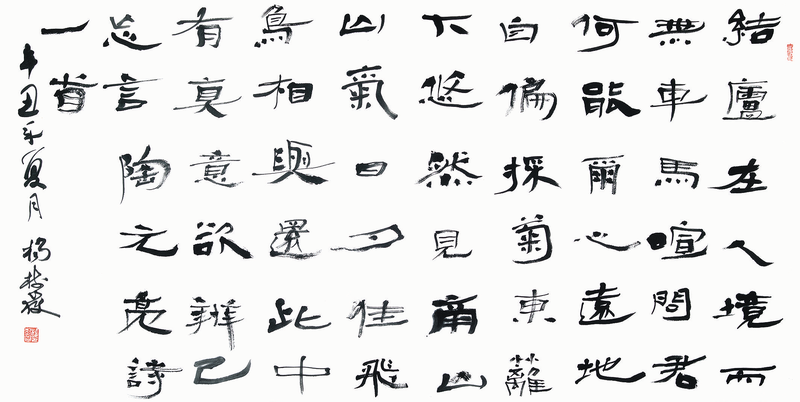 結廬在人境而
無車馬喧問君
何能爾心遠地
自偏採菊東籬
下悠然見南山
山氣日夕佳飛
鳥相與還此中
有真意欲辨已
忘言陶元亮詩
一首
辛丑年夏月